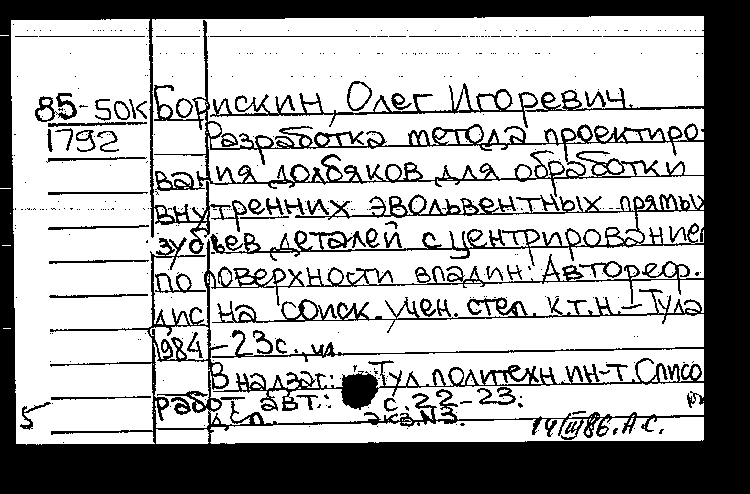 85-50к Борискин, Олег Игоревич.
1792 Разработка метода проектиро-
вания долбяков для обработки
внутренних эвольвентных прямых
зубьев деталей с центрирование
по поверхности впадин: Автореф.
дис на соиск. учен. степ. к.т.н. – Тула
1984 – 23с., ил.
В надзаг.: Тул. политехн. ин-т. Списо
работ авт.: с. 22-23.
5 ДСП. экз.N3.
14/III 86. А.С.